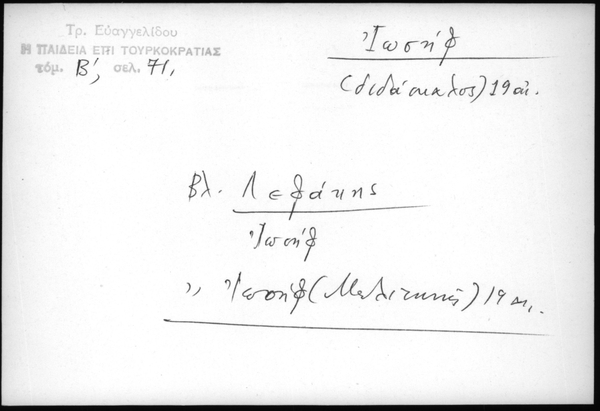 Τρ. Εὐαγγελίδου
Η ΠΑΙΔΕΙΑ ΕΠΙ ΤΟΥΡΚΟΚΡΑΤΙΑΣ
τόμ. Β΄, σελ. 71,
Ἰωσήφ
(διδάσκαλος) 19 αἰ.
Βλ. Λεφάκης
Ἰωσήφ
,, Ἰωσήφ (Μελιτινῆς) 19 αι.